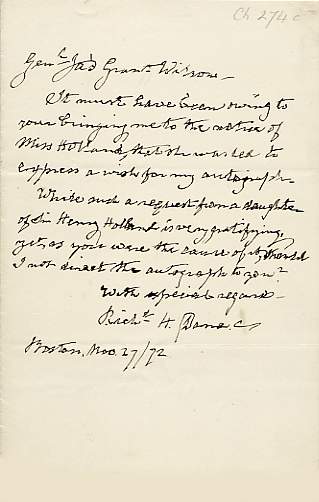 Ch 274 c
Genl. Jas Grant Wilson—
It must have been owing to
your bringing me to the notice of
Miss Holland, that she was led to
express a wish for my autograph.
While such a request from a daughter
of Sir Henry Holland is very gratifying,
yet, as you were the cause of it, should
I not direct the autograph to you?
With special regard—
Richd. H. Dana
Boston, Nov. 27/72